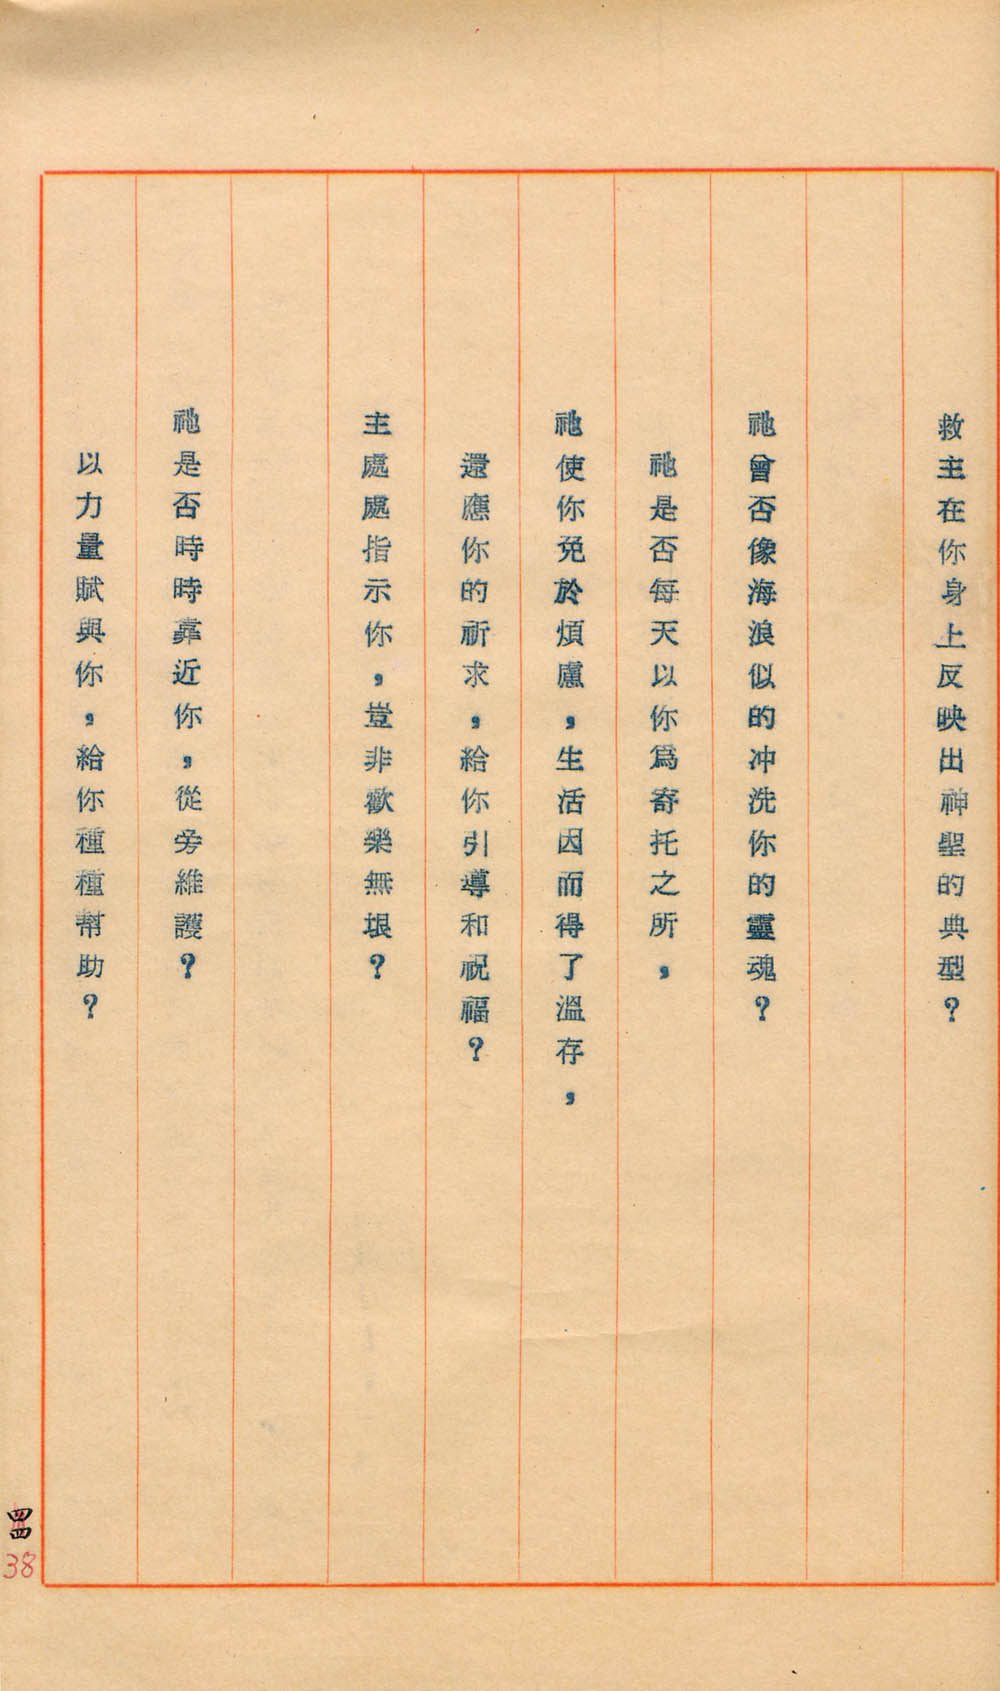 救主在你身上反映出神聖的典型？
祂曾否像海浪似的冲洗你的靈魂？
祂是否每天以你爲寄托之所，
祂使你免於煩慮，生活因而得了溫存，
還應你的祈求，給你引導和祝福？
主處處指示你，豈非歡樂無垠？
祂是否時時靠近你，從旁維護？
以力量賦與你，給你種種幫助？
四四
38